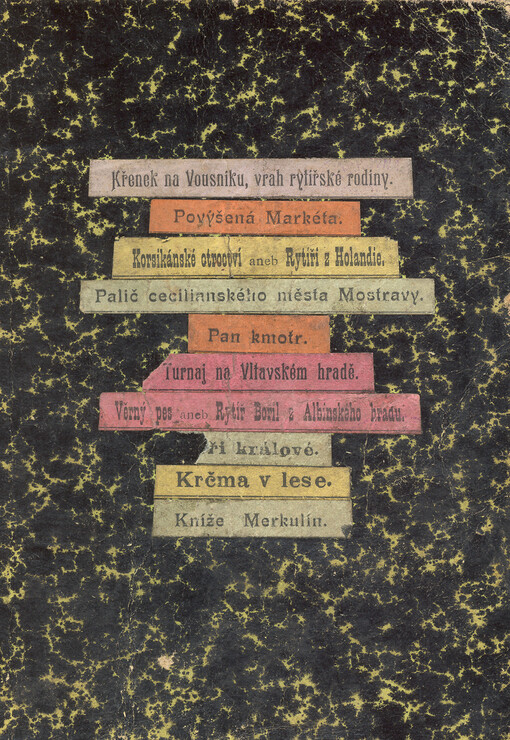 Křenek na Vousníku, vrah rytířské rodiny.
Povýšená Markéta.
Korsikánské otroctví aneb Rytíři z Holandie.
Palič cecilianského města Mostravy.
Pan kmotr.
Turnaj na Vltavském hradě.
Věrný pes aneb Rytíř Boril z Albinského hradu.
ři králové.
Krčma v lese.
Kníže Merkulín.